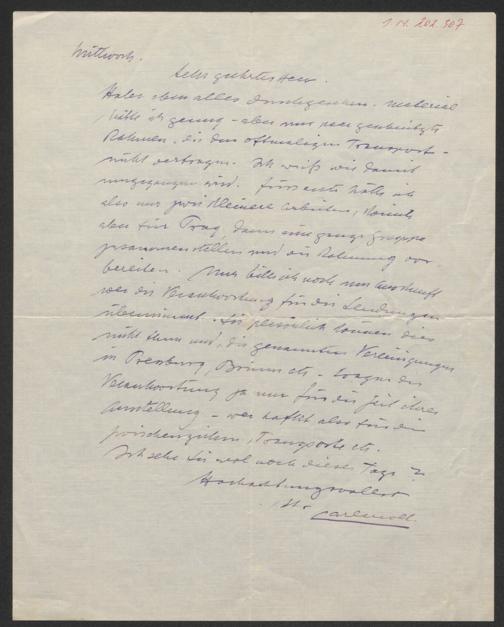 1 N. 202.307
Mittwoch.
Sehr geehrter Herr.
Habe eben alles . Material
hätte ich genug - aber nur
Rahmen, die den oftmaligen Transport
nicht vertragen. Ich weiß wie damit
umgegangen wird. Fürs erste hätte ich
also nur zwei kleinere Arbeiten, könnte
aber für Prag dann eine ganze Gruppe
zusammenstellen und die Rahmung vor-
bereiten. Nun bitte ich noch um Auskunft
wer die Verantwortung für die Sendungen
übernimmt. Sie persönlich können dies
nicht tun und die genannten Vereinigungen
in Pressburg, Brünn etc - tragen die
Verantwortung ja nur für die Zeit ihrer
Ausstellung - wer haftet also für die
Zwischenzeiten, Transporte etc.
Ich sehe Sie wol noch dieser Tage ?
Hochachtungsvollst
Ihr
Carl Moll